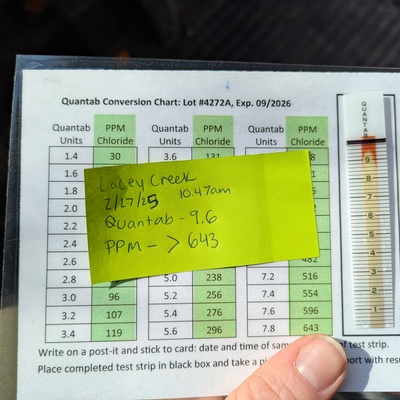 Quantab Conversion Chart: Lot #4272A, Exp. 09/2026
Quantab Units PPM Chloride Quantab Units PPM Chloride Quantab Units PPM Chloride
1.4 30 3.6 131 8
1.6
1.8
2.0
2.2
2.4
2.6 482
2.8 5.0 238 7.2 516
3.0 96 5.2 256 7.4 554
3.2 107 5.4 276 7.6 596
3.4 119 5.6 296 7.8 643
Lacey Creek
2/27/25 10:47am
Quantab - 9.6
PPM - > 643
QUANTAB
9
8
7
6
5
4
3
2
1
Write on a post-it and stick to card: date and time of sam of test strip.
Place completed test strip in black box and take a pi ort with resu